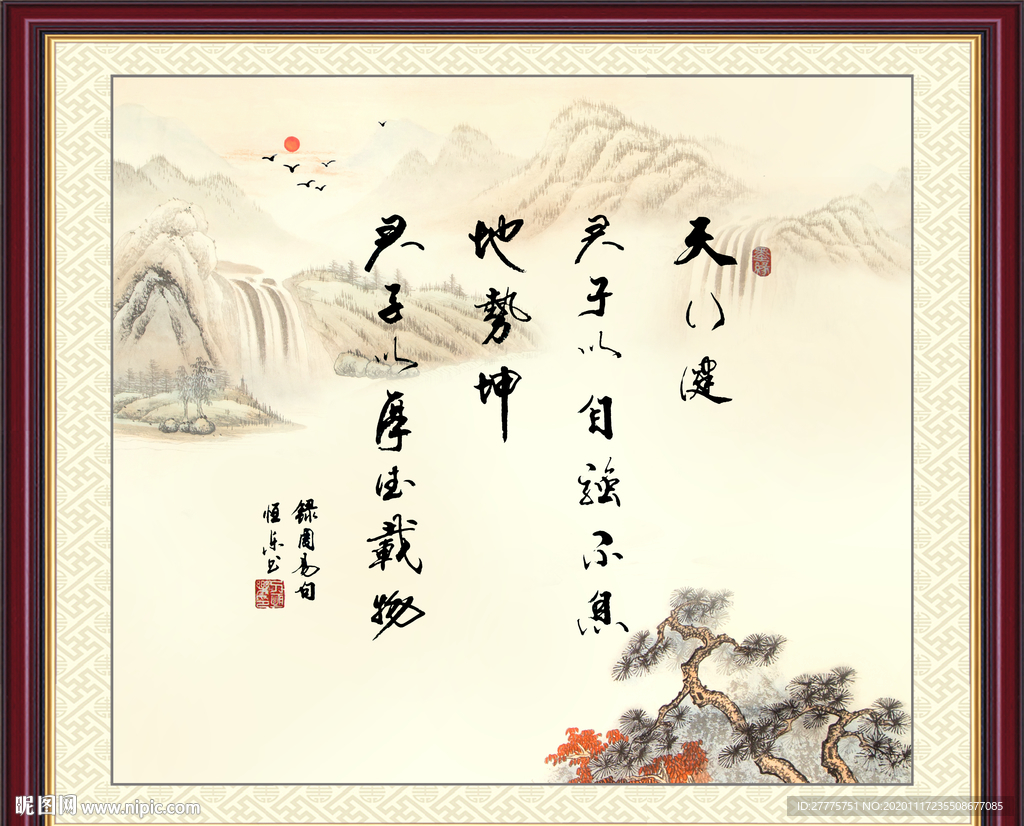 天行健
君子以自強不息
地勢坤
君子以厚德載物
錄周易句
恒乐书
昵图网 www.nipic.com
ID:27775751 NO:20201117235508677085